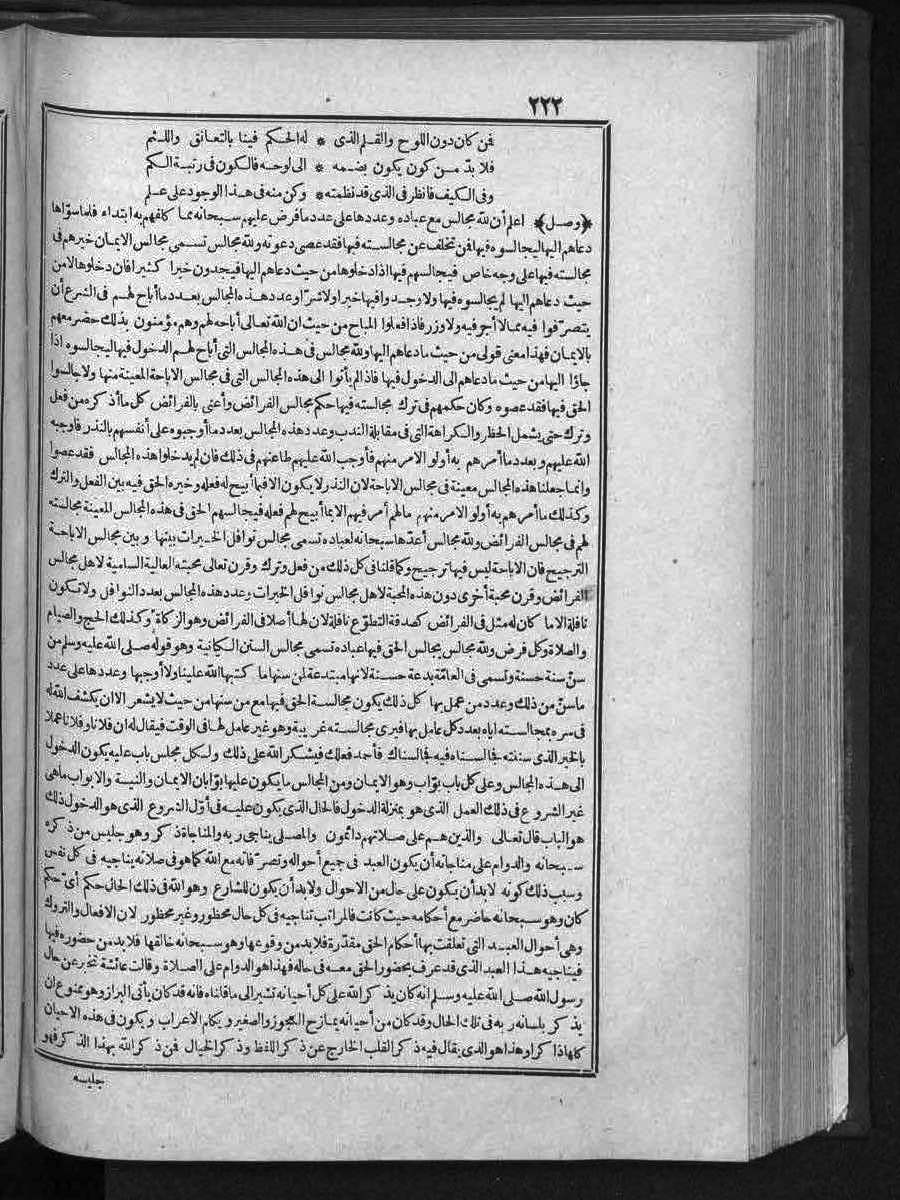 ٢٢٢
فمن كان دون اللوح والقلم الذى * له الحكم فينا بالتعانق واللثم
فلا بدّ من كون يكون بضمه * الى لوحه فالكون فى رتبة الكم
وفى الكيف فانظر فى الذى قد نظمته * وكن منه فى هذا الوجود على علم
﴿وصل﴾ اعلم أن لله مجالس مع عباده وعددها على عدد ما فرض عليهم سبحانه مما كلفهم به ابتداء فلما سوّاها
دعاهم اليها ليجالسوه فيها فمن تخلف عن مجالسته فيها فقد عصى دعوته ولله مجالس تسمى مجالس الايمان خيرهم فى
مجالسته فيها على وجه خاص فيجالسهم فيها اذا دخلوها من حيث دعاهم اليها فيجدون خيرا كثيرا فان دخلوها لا من
حيث دعاهم اليها لم يجالسوه فيها ولا وجدوا فيها خيرا ولا شرّا وعدد هذه المجالس بعدد ما أباح لهم فى الشرع أن
يتصرّفوا فيه مما لا أجر فيه ولا وزر فاذا فعلوا المباح من حيث ان الله تعالى أباحه لهم وهم مؤمنون بذلك حضر معهم
بالايمان فهذا معنى قولى من حيث ما دعاهم اليها ولله مجالس فى هذه المجالس التى أباح لهم الدخول فيها ليجالسوه اذا
جاؤا اليها من حيث ما دعاهم الى الدخول فيها فاذا لم يأتوا الى هذه المجالس التى فى مجالس الاباحة المعينة منها ولا جالسوا
الحق فيها فقد عصوه وكان حكمهم فى ترك مجالسته فيها حكم مجالس الفرائض وأعنى بالفرائض كل ما أذكره من فعل
وترك حتى يشمل الحظر والكراهة التى فى مقابلة الندب وعدد هذه المجالس بعدد ما أوجبوه على أنفسهم بالنذر فأوجبه
الله عليهم وبعدد ما أمرهم به أولو الامر منهم فأوجب الله عليهم طاعتهم فى ذلك فان لم يدخلوا هذه المجالس فقد عصوا
وانما جعلنا هذه المجالس معينة فى مجالس الاباحة لان النذر لا يكون الا فيما أبيح له فعله وخيره الحق فيه بين الفعل والترك
وكذلك ما أمرهم به أولو الامر منهم ما لهم أمر فيهم الا بما أبيح لهم فعله فيجالسهم الحق فى هذه المجالس المعينة مجالسته
لهم فى مجالس الفرائض ولله مجالس أعدّها سبحانه لعباده تسمى مجالس نوافل الخيرات بينها وبين مجالس الاباحة
الترجيح فان الاباحة ليس فيها ترجيح وكما قلنا فى كل ذلك من فعل وترك وقرن تعالى محبته العالية السامية لاهل مجالس
الفرائض وقرن محبة أخرى دون هذه المحبة لاهل مجالس نوافل الخيرات وعدد هذه المجالس بعدد النوافل ولا تكون
نافلة الا ما كان له مثل فى الفرائض كصدقة التطوّع نافلة لان لها أصلا فى الفرائض وهو الزكاة وكذلك الحج والصيام
والصلاة وكل فرض ولله مجالس يجالس الحق فيها عباده تسمى مجالس السنن الكيانية وهو قوله صلى الله عليه وسلم من
سنّ سنة حسنة وتسمى فى العامّة بدعة حسنة لانها مبتدعة لمن سنها ما كتبها الله علينا ولا أوجبها وعددها على عدد
ما سنّ من ذلك وعدد من عمل بها كل ذلك يكون مجالسة الحق فيها مع من سنها من حيث لا يشعر الا ان يكشف الله له
فى سره بمجالسته اياه بعدد كل عامل بها فيرى مجالسته غريبة وهو غير عامل لها فى الوقت فيقال له ان فلانا وفلانا عملا
بالخير الذى سننته لجالسناه فيه فجالسناك فأحمد فعلك فيشكر الله على ذلك ولكل مجلس باب عليه يكون الدخول
الى هذه المجالس وعلى كل باب بوّاب وهو الايمان ومن المجالس ما يكون عليها بوّابان الايمان والنية والابواب ما هى
غير الشروع فى ذلك العمل الذى هو بمنزلة الدخول فالحال الذى يكون عليه فى أوّل الشروع الذى هو الدخول ذلك
هو الباب قال تعالى والذين هم على صلاتهم دائمون والمصلى يناجى ربه والمناجاة ذكر وهو جليس من ذكره
سبحانه والدوام على مناجاته أن يكون العبد فى جميع أحواله وتصرّفاته مع الله كما هو فى صلاته يناجيه فى كل نفس
وسبب ذلك كونه لا بد أن يكون على حال من الاحوال ولا بد أن يكون للشارع وهو الله فى ذلك الحال حكم أىّ حكم
كان وهو سبحانه حاضر مع أحكامه حيث كانت فالمراتب تناجيه فى كل حال محظور وغير محظور لان الافعال والتروك
وهى أحوال العبد التى تعلقت بها أحكام الحق مقدّرة فلا بد من وقوعها وهو سبحانه خالقها فلا بد من حضوره فيها
فيناجيه هذا العبد الذى قد عرف بحضور الحق معه فى حاله فهذا هو الدوام على الصلاة وقالت عائشة تخبر عن حال
رسول الله صلى الله عليه وسلم انه كان يذكر الله على كل أحيانه تشير الى ما قلناه فانه قد كان يأتى البراز وهو ممنوع ان
يذكر بلسانه ربه فى تلك الحال وقد كان من أحيانه يمازح العجوز والصغير ويكلم الاعراب ويكون فى هذه الاحيان
كلها ذاكرا وهذا هو الذى يقال فيه ذكر القلب الخارج عن ذكر اللفظ وذكر الخيال فمن ذكر الله بهذا الذكر فهو
جليسه